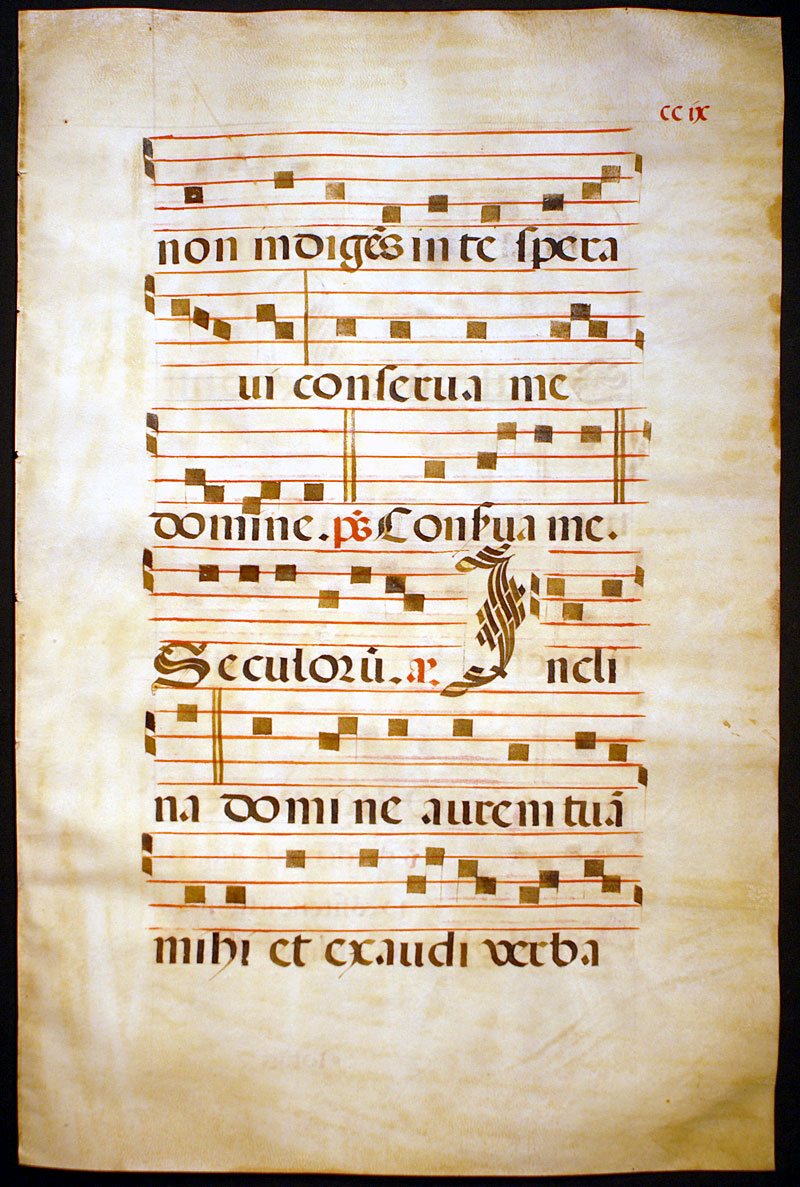 cc ix
non indigēs in te spera
ui conserua me
domine. ps̄ Conſ̄ua me.
Seculorū. a. Incli
na domine aurem tuā
mihi et exaudi verba